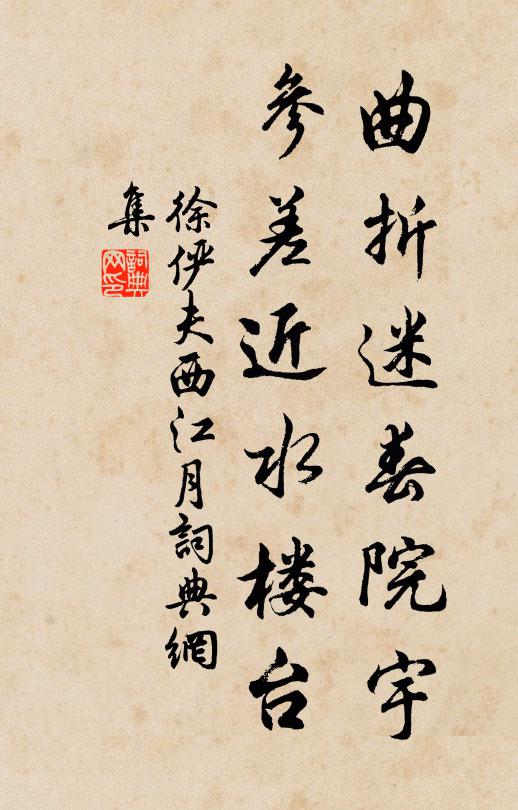 曲折迷春院宇
参差近水楼台
徐俨夫西江月詞典網
集
詞典網印